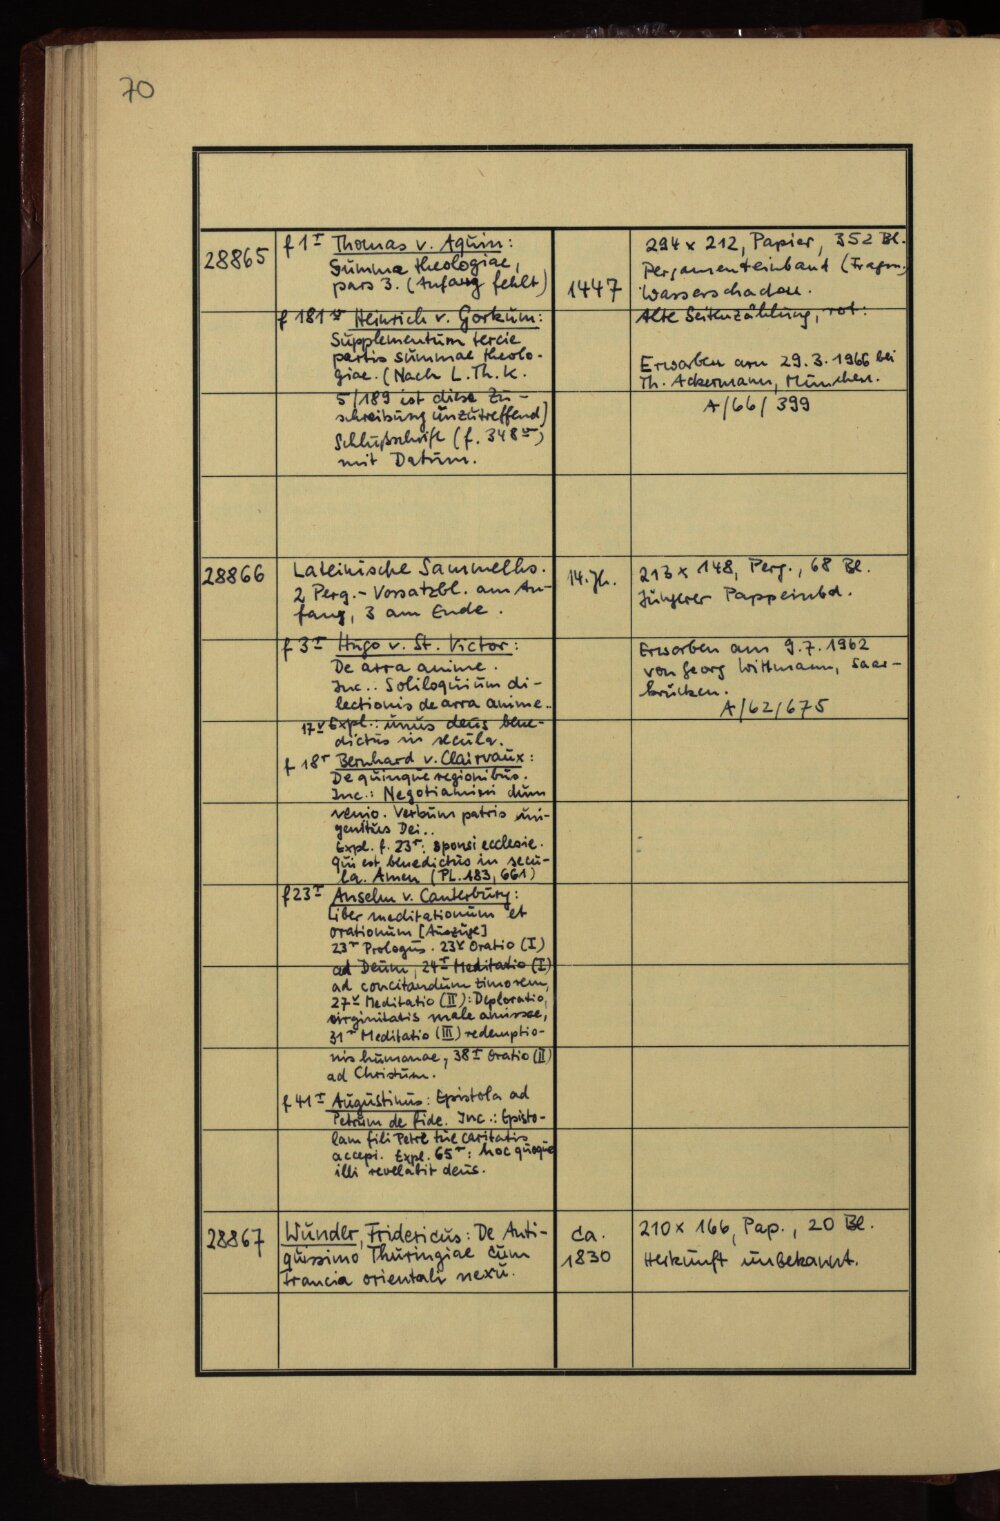 70
28865
f 1r Thomas v. Aquin:
Summa theologiae,
pars 3. (Anfang fehlt)
f 181v Heinrich v. Gorkum:
Supplementum tercie
partis summae theolo-
giae. (Nach L. Th. K.
5/189 ist diese Zu-
schreibung unzutreffend)
Schlußschrift (f. 348v)
mit Datum.
1447
294 x 212, Papier, 352 Bl.
Pergamenteinband (Fragm.)
Wasserschaden.
Alte Seitenzählung, rot.
Erworben am 29.3.1966 bei
Th. Ackermann, München.
A/66/399
28866
Lateinische Sammelhs.
2 Perg.-Vorsatzbl. am An-
fang, 3 am Ende.
f 3r Hugo v. St. Victor:
De arra anime.
Inc.: Soliloquium di-
lectionis de arra anime..
17v Expl.: unus deus bene-
dictus in secula.
f 18r Bernhard v. Clairvaux:
De quinque regionibus.
Inc.: Negotiamini dum
venio. Verbum patris uni-
genitus Dei..
Expl. f. 23r: sponsi ecclesie.
qui est benedictus in secu-
la. Amen (PL. 183, 661)
f 23r Anselm v. Canterbury:
Liber meditationum et
orationum [Auszüge]
23r Prologus. 23v Oratio (I)
ad Deum, 24r Meditatio (I)
ad concitandum timorem,
27v Meditatio (II): Deploratio
virginitatis male amissae,
31r Meditatio (III) redemptio-
nis humanae, 38r Oratio (II)
ad Christum.
f 41r Augustinus: Epistola ad
Petrum de fide. Inc.: Episto-
lam fili Petre tue caritatis
accepi. Expl. 65r: hoc quoque
illi revelabit deus.
14. Jh.
213 x 148, Perg., 68 Bl.
Jüngerer Pappeinbd.
Erworben am 9.7.1962
von Georg Wittmann, Saar-
brücken.
A/62/675
28867
Wunder, Fridericus: De Anti-
quissimo Thuringiae cum
Francia orientali nexu.
ca.
1830
210 x 166, Pap., 20 Bl.
Herkunft unbekannt.